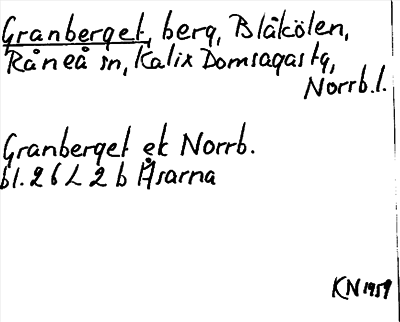 Granberget, berg, Blåkölen,
Råneå sn, Kalix Domsagas tg,
Norrb.l.
Granberget ek Norrb.
bl. 26 L 2 b Åsarna
KN 1959